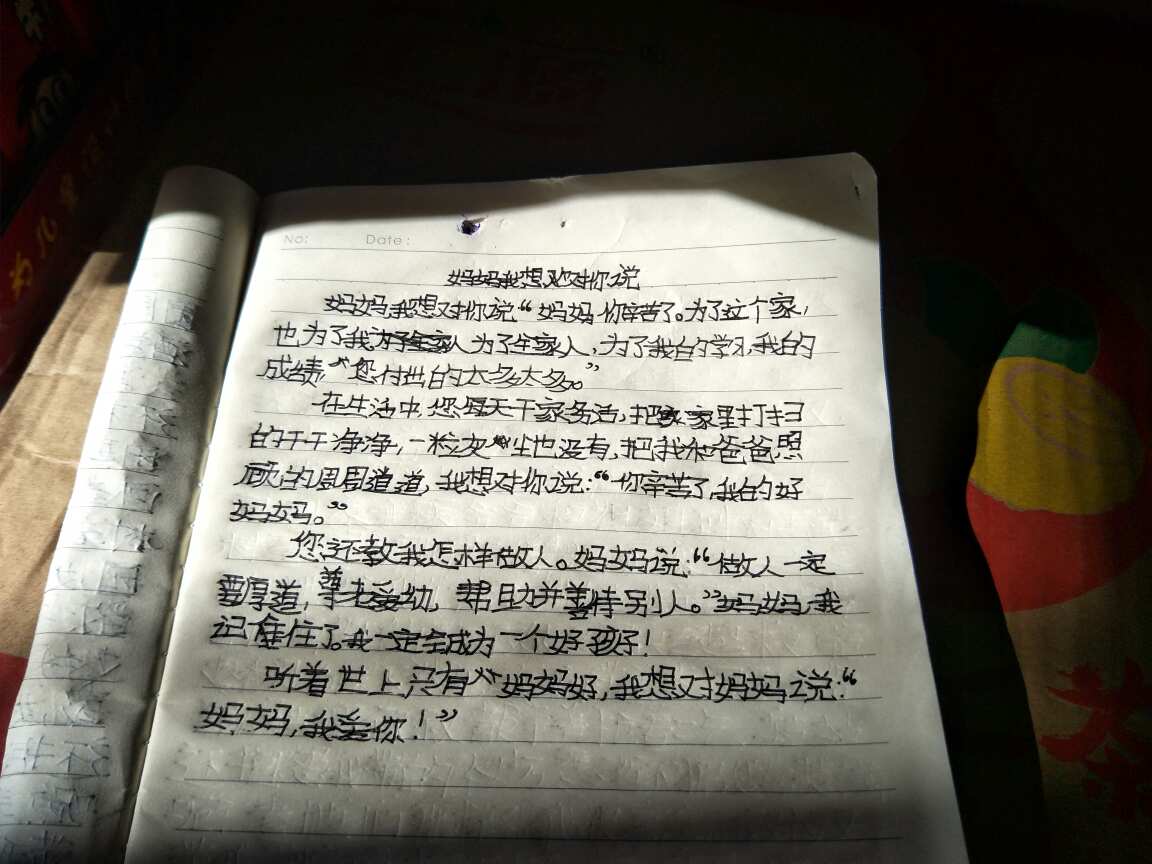 No:   Date:
妈妈我想对你说
妈妈,我想对你说“妈妈你辛苦了。为了这个家,
也为了我为了全家人,为了我的学习,我的
成绩,您付出的太多太多。”
在生活中您每天干家务活,把家里打扫
的干干净净,一粒灰尘也没有,把我和爸爸照
顾的周周道道,我想对你说:“你辛苦了,我的好
妈妈。”
您还教我怎样做人。妈妈说:“做人一定
要厚道,尊老爱幼,帮助并善待别人。”妈妈,我
记住了。我一定会成为一个好孩子!
听着世上只有妈妈好,我想对妈妈说:“
妈妈,我爱你!”